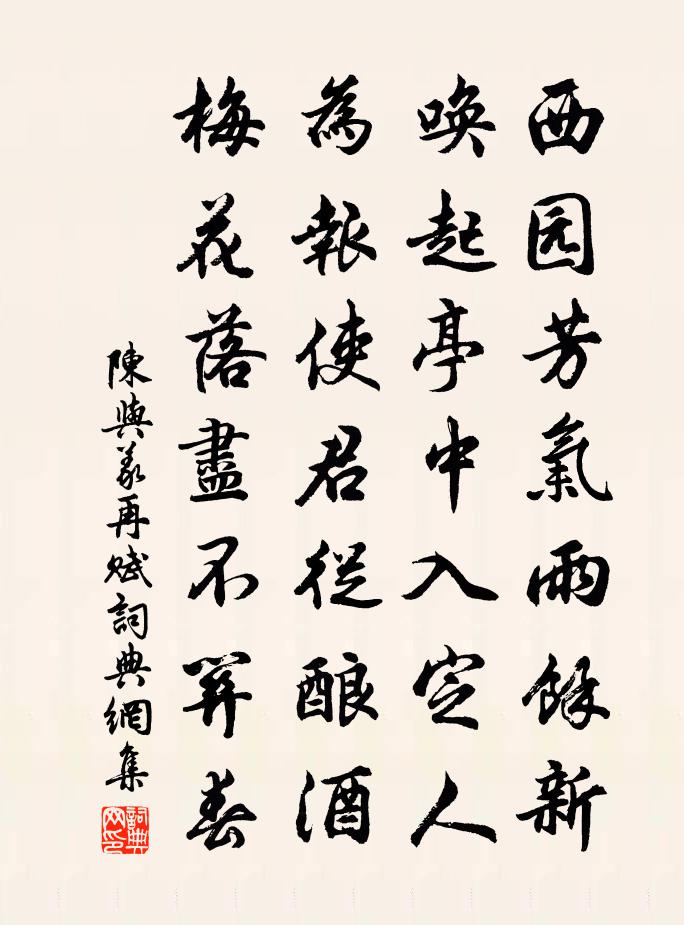 西园芳氣雨餘新
喚起亭中入定人
為報使君從酿酒
梅花落盡不筭春
陳與義再赋詞典網集
詞典网印